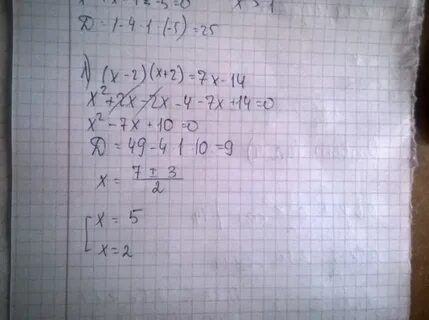 D = 1 - 4 · 1 · (-5) = 25
1) (x-2)(x+2) = 7x - 14
x² + 2x - 2x - 4 - 7x + 14 = 0
x² - 7x + 10 = 0
D = 49 - 4 · 1 · 10 = 9
x = (7 ± 3)/2
[ x = 5
x = 2